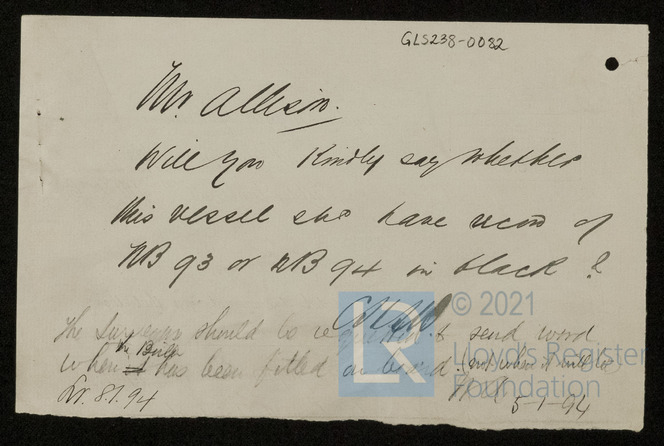 GLS238-0082
Mr. Allison.
Will you kindly say whether
this vessel shd have record of
NB 93 or NB 94 in black?
The Surveyors should be requested to send word
when the Boiler has been fitted on board. (not when it will be
Lr. 8.1.94
5-1-94
© 2021
LR
Lloyd's Register
Foundation